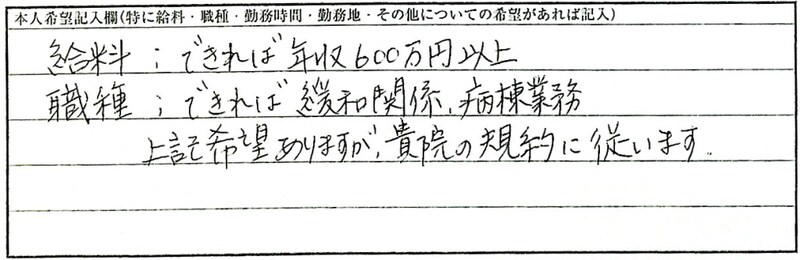 本人希望記入欄(特に給料・職種・勤務時間・勤務地・その他についての希望があれば記入)
給料；できれば年収600万円以上
職種；できれば緩和関係、病棟業務
上記希望ありますが、貴院の規約に従います。